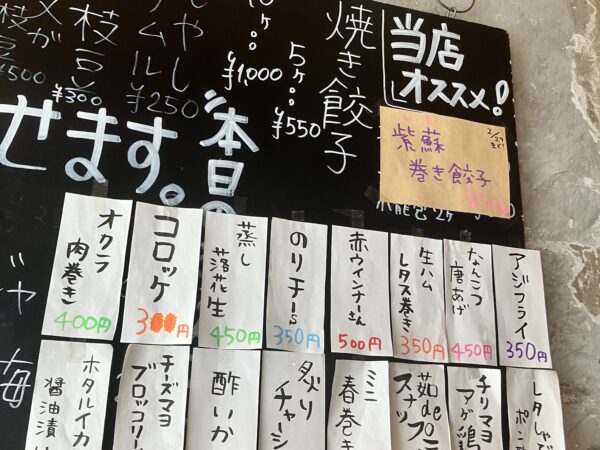 当店
オススメ!
2/27
まで!
紫蘇
巻き餃子
焼き餃子
5ケ...
¥550
¥1,000
¥250
枝豆
¥300
¥500
本日の
せます。
アジフライ
350円
なんこつ
唐あげ
450円
生ハム
レタス巻き
350円
赤ウィンナーさん
500円
のりチーs
350円
蒸し
落花生
450円
コロッケ
300円
オクラ
肉巻き
400円
チリマヨ
アゲ鶏
茹de
スナッ
ミニ
春巻き
炙り
チャーシ
酢いか
チーズマヨ
ブロッコリー
ホタルイカ
醤油漬け